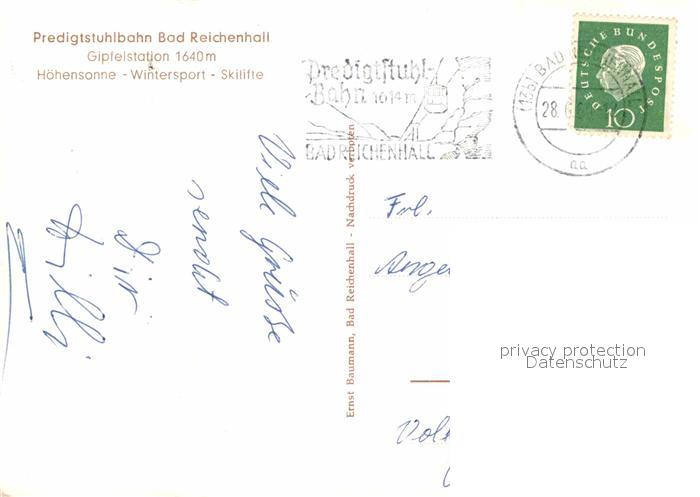 Predigtstuhlbahn Bad Reichenhall
Gipfelstation 1640m
Höhensonne - Wintersport - Skilifte
Predigtstuhl-
Bahn 1614m
BAD REICHENHALL
(13b) BAD
28.
aa
DEUTSCHE BUNDESPOST
10
Viele Grüsse
sendet
Dir
Willi
Ernst Baumann, Bad Reichenhall - Nachdruck verboten
Frl.
privacy protection
Datenschutz